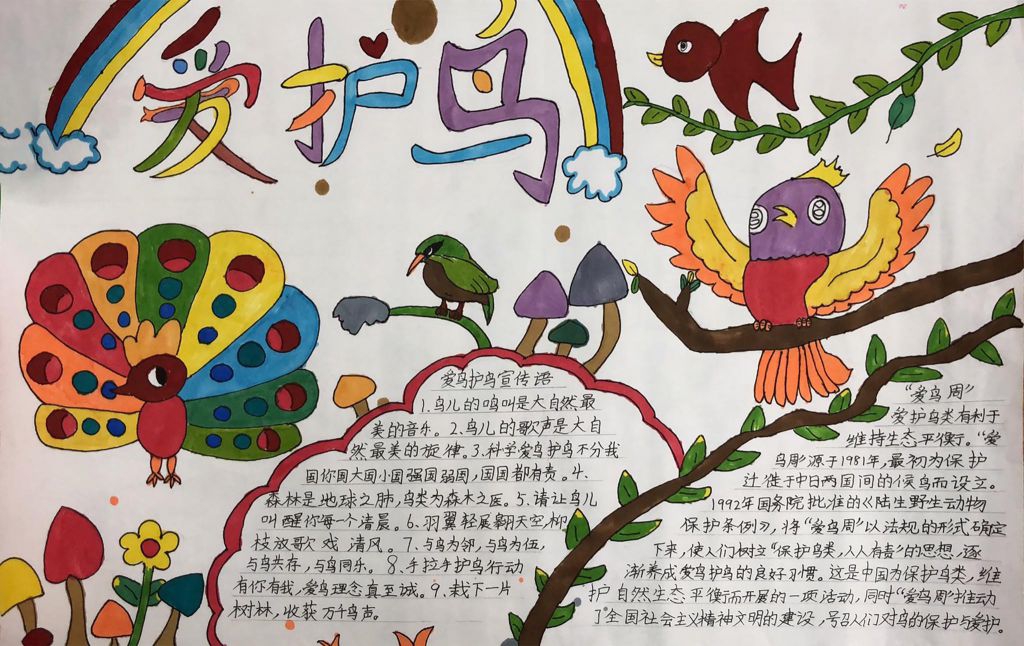 爱护鸟
爱鸟护鸟宣传语
1.鸟儿的鸣叫是大自然最
美的音乐。2.鸟儿的歌声是大自
然最美的旋律。3.科学爱鸟护鸟不分我
国你国大国小国强国弱国,国国都有责。4.
森林是地球之肺,鸟类为森木之医。5.请让鸟儿
叫醒你每一个清晨。6.羽翼轻展翱天空,柳
枝放歌戏清风。7.与鸟为邻,与鸟为伍,
与鸟共存,与鸟同乐。8.手拉手护鸟行动
有你有我,爱鸟理念真至诚。9.栽下一片
树林,收获万千鸟声。
“爱鸟周”
爱护鸟类有利于
维持生态平衡。“爱
鸟周”源于1981年,最初为保护
迁徙于中日两国间的候鸟而设立。
1992年国务院批准的《陆生野生动物
保护条例》,将“爱鸟周”以法规的形式确定
下来,使人们树立“保护鸟类,人人有责”的思想,逐
渐养成爱鸟护鸟的良好习惯。这是中国为保护鸟类,维
护自然生态平衡而开展的一项活动,同时“爱鸟周”推动
了全国社会主义精神文明的建设,号召人们对鸟的保护与爱护。